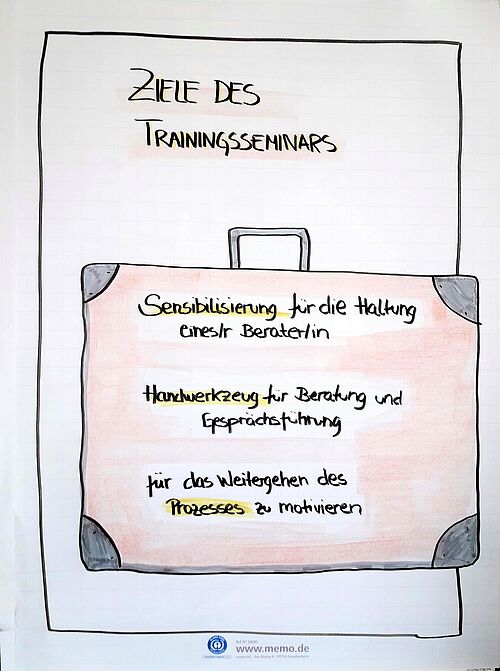 ZIELE DES
TRAININGSSEMINARS
Sensibilisierung für die Haltung
eines/r Berater/in
Handwerkzeug für Beratung und
Gesprächsführung
für das Weitergehen des
Prozesses zu motivieren
www.memo.de